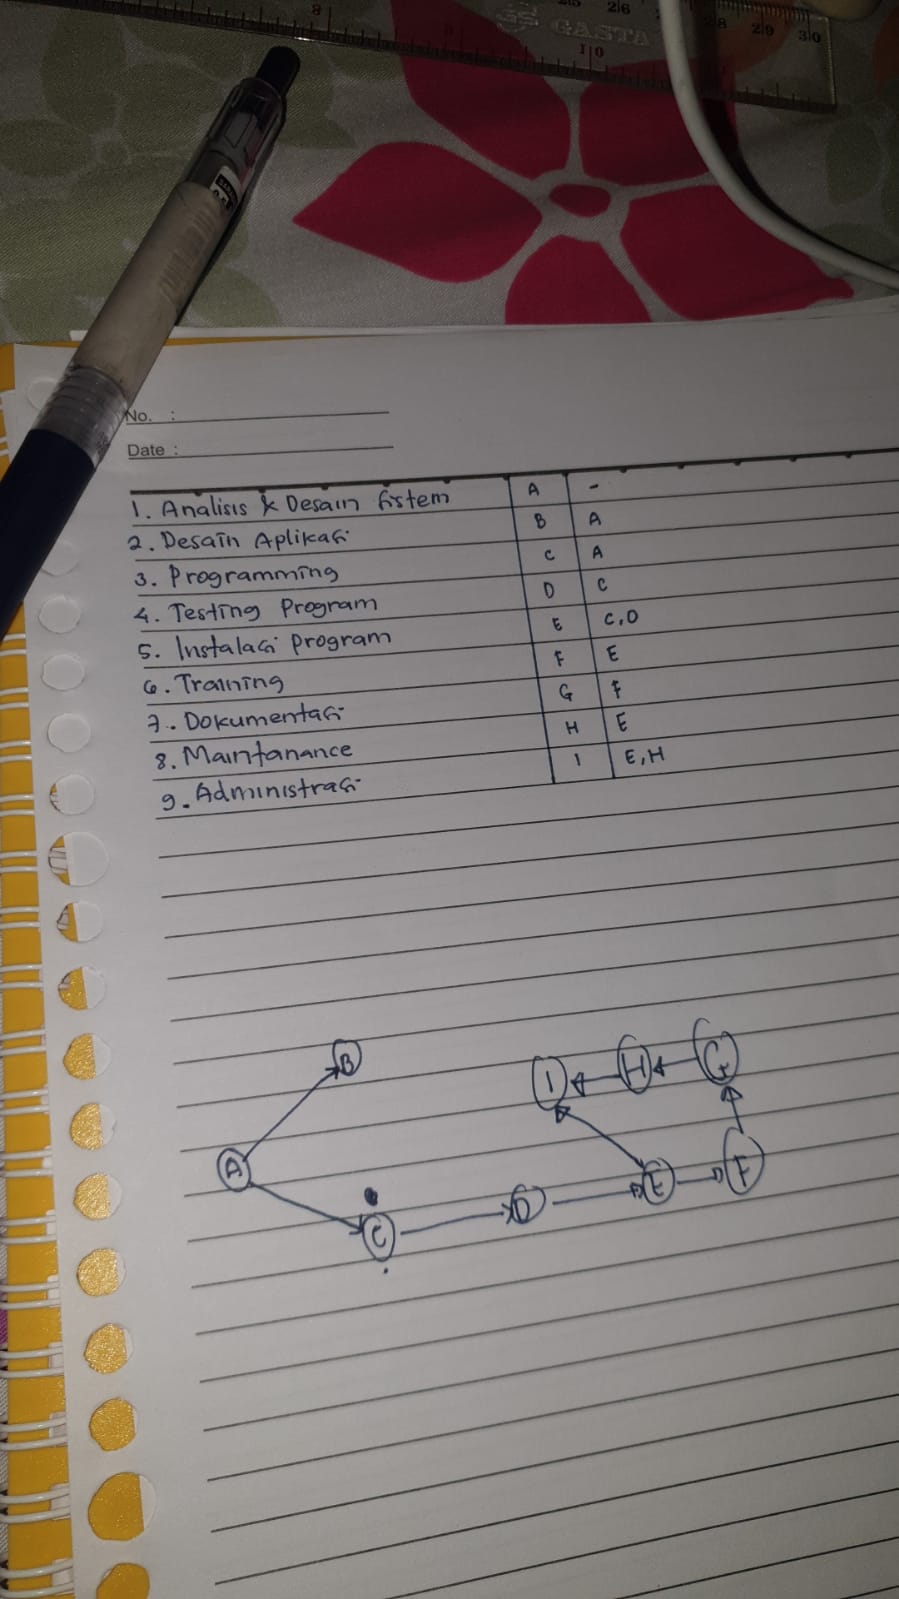 8
26
28
29
30
GASTA
10
No. :
Date :
1. Analisis & Desain Sistem A -
2. Desain Aplikasi B A
3. Programming C A
4. Testing Program D C
5. Instalasi program E C,D
6. Training F E
7. Dokumentasi G F
8. Maintanance H E
9. Administrasi I E,H
B
I H G
A
C D E F